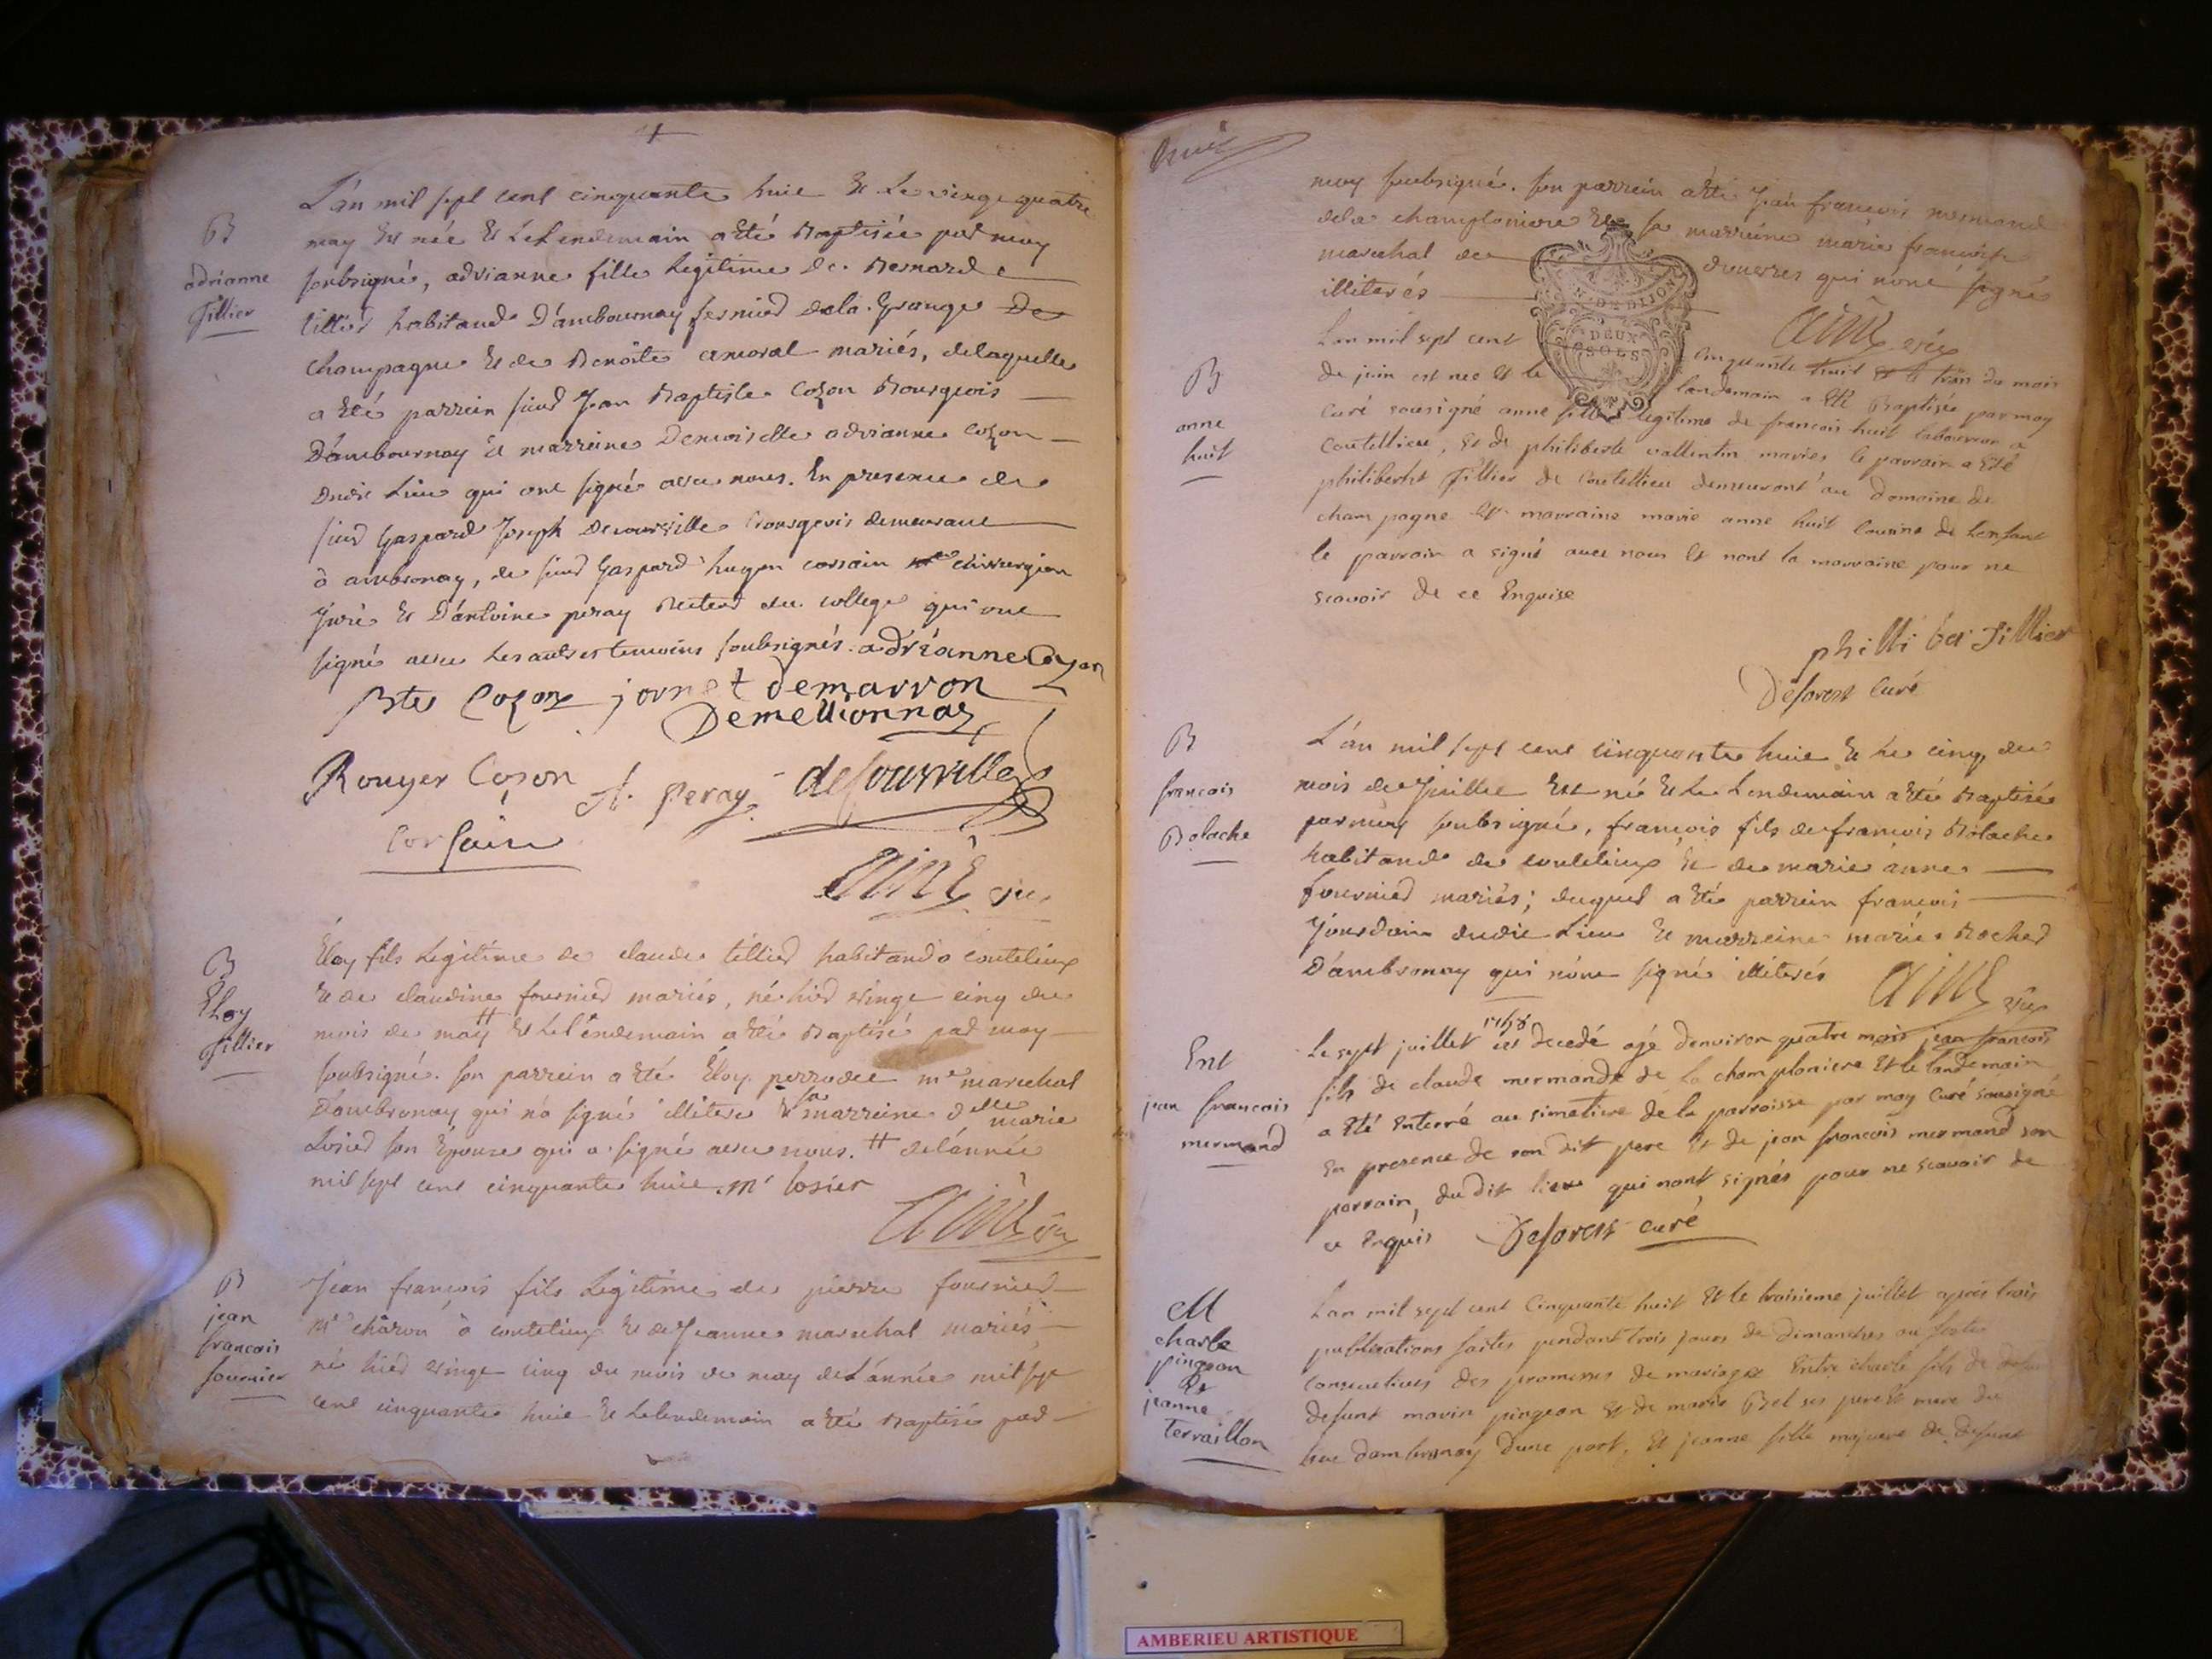 L'an mil sept cent cinquante huit Et Le vingt quatre
B
may Est née Et Le Lendemain a Eté Baptisée par moy
adrianne
soubsigné, adrianne fille Legitime de Bernard
Tillier
tillier habitand D'ambournay fermier dela Grange De
champagne Et de Benoite amoral mariés, delaquelle
a Eté parrein sieur Jean Baptiste Cozon Bourgeois
D'ambournay Et marreine Demoiselle adrianne Cozon
Dudit Lieu qui ont signé avec nous. En presence de
sieur Gaspard Joseph Bourgeois demeurant
à ambronay, de sieur Gaspard hugon corsain chirurgien
Juré Et D'antoine peray Recteur du college qui ont
signé avec Les autres temoins soubsignés. adréanne Cozon
Bte Cozon jornet demarron
Demellionnas
Rouyer Cozon A. peray
Corsain
aimé vic
B
Eloy
Tillier
Eloy fils Legitime de claude tillier habitand à coutelieux
Et de claudine fournier mariés, né hier vingt cinq du
mois de may # Et Le Lendemain a Eté Baptisé par moy
soubsigné. son parrein a Eté Eloy me marechal
D'ambronay qui n'a signé illiteré Et sa marreine delle marie
Losier son Epouse qui a signé avec nous. # del'année
mil sept cent cinquante huit. m Losier
aimé vic
B
jean
francois
fournier
Jean françois fils Legitime de pierre fournier
me charon à coutelieux Et de Jeanne marechal mariés
né hier vingt cinq du mois de may de L'année mil sept
cent cinquante huit Et Le Lendemain a Eté Baptisé par
huit
moy soubsigné. son parrein a Eté Jean françois mermand
dela championiere Et sa marreine marie françoise
marechal de douvres qui n'ont signé
illiterés
G. DE DIJON
DEUX
SOLS
aimé vic
B
anne
huit
L'an mil sept cent cinquante huit et le trois du mois
de juin est nee et le landemain a Eté Baptisée par moy
Curé sousigné anne fille legitime de francois huit laboureur a
Coutellieu, Et de philiberte vallentin mariés le parrain a Eté
philibert Tillier de Coutellieu demeurant au Domaine de
champagne Et marraine marie anne huit Cousine de Lenfant
le parrain a signé avec nous Et nont la marraine pour ne
scavoir de ce Enquise
phillibert Tillier
Deforest Curé
B
francois
Bolache
L'an mil sept cent cinquante huit Et Le cinq du
mois de Juillet Est né Et Le Lendemain a Eté Baptisé
par moy soubsigné, françois fils de françois Bolache
habitand de coutelieux Et de marie anne
fournier mariés; duquel a Eté parrein françois
Jourdain dudit Lieu Et marreine marie Rocher
D'ambronay qui n'ont signé illiterés
aimé vic
Ent
jean francois
mermand
Le sept juillet 1758 est decedé agé denviron quatre mois jean francois
fils de claude mermand de la championiere Et le landemain
a Eté Enterré au simetiere de la parroisse par moy Curé sousigné
En presence de son dit pere Et de jean francois mermand son
parrain, du dit lieu qui nont signés pour ne scavoir de
ce Enquis Deforest curé
M
charle
pingeon
Et
jeanne
Terraillon
Lan mil sept cent Cinquante huit Et le troisieme juillet après trois
publications faites pendant trois jours de dimanches ou festes
consecutives des promesses de mariage Entre charle fils de
defunt marin pingeon Et de marie Bel ses pere Et mere du
lieu dambronay Dune part, Et jeanne fille majeure de defunt
AMBERIEU ARTISTIQUE